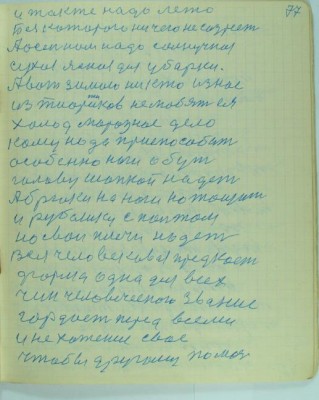 77
и также надо лето
Без которого ничего не созреет
А осенком надо солнучная
сухая ясная для уборки.
А вот зимою никто из нас
из стариков не
холод морозное дело
кому надо приспособят
особенно ноги обут
голову шапкой надет
А брюки на ноги
и рубашки с
но свои плечи надет
Вся человеков
форма одна для всех
чин человеческого звание
гордает перед всеми
и не хотение свое
чтобы другому помоз